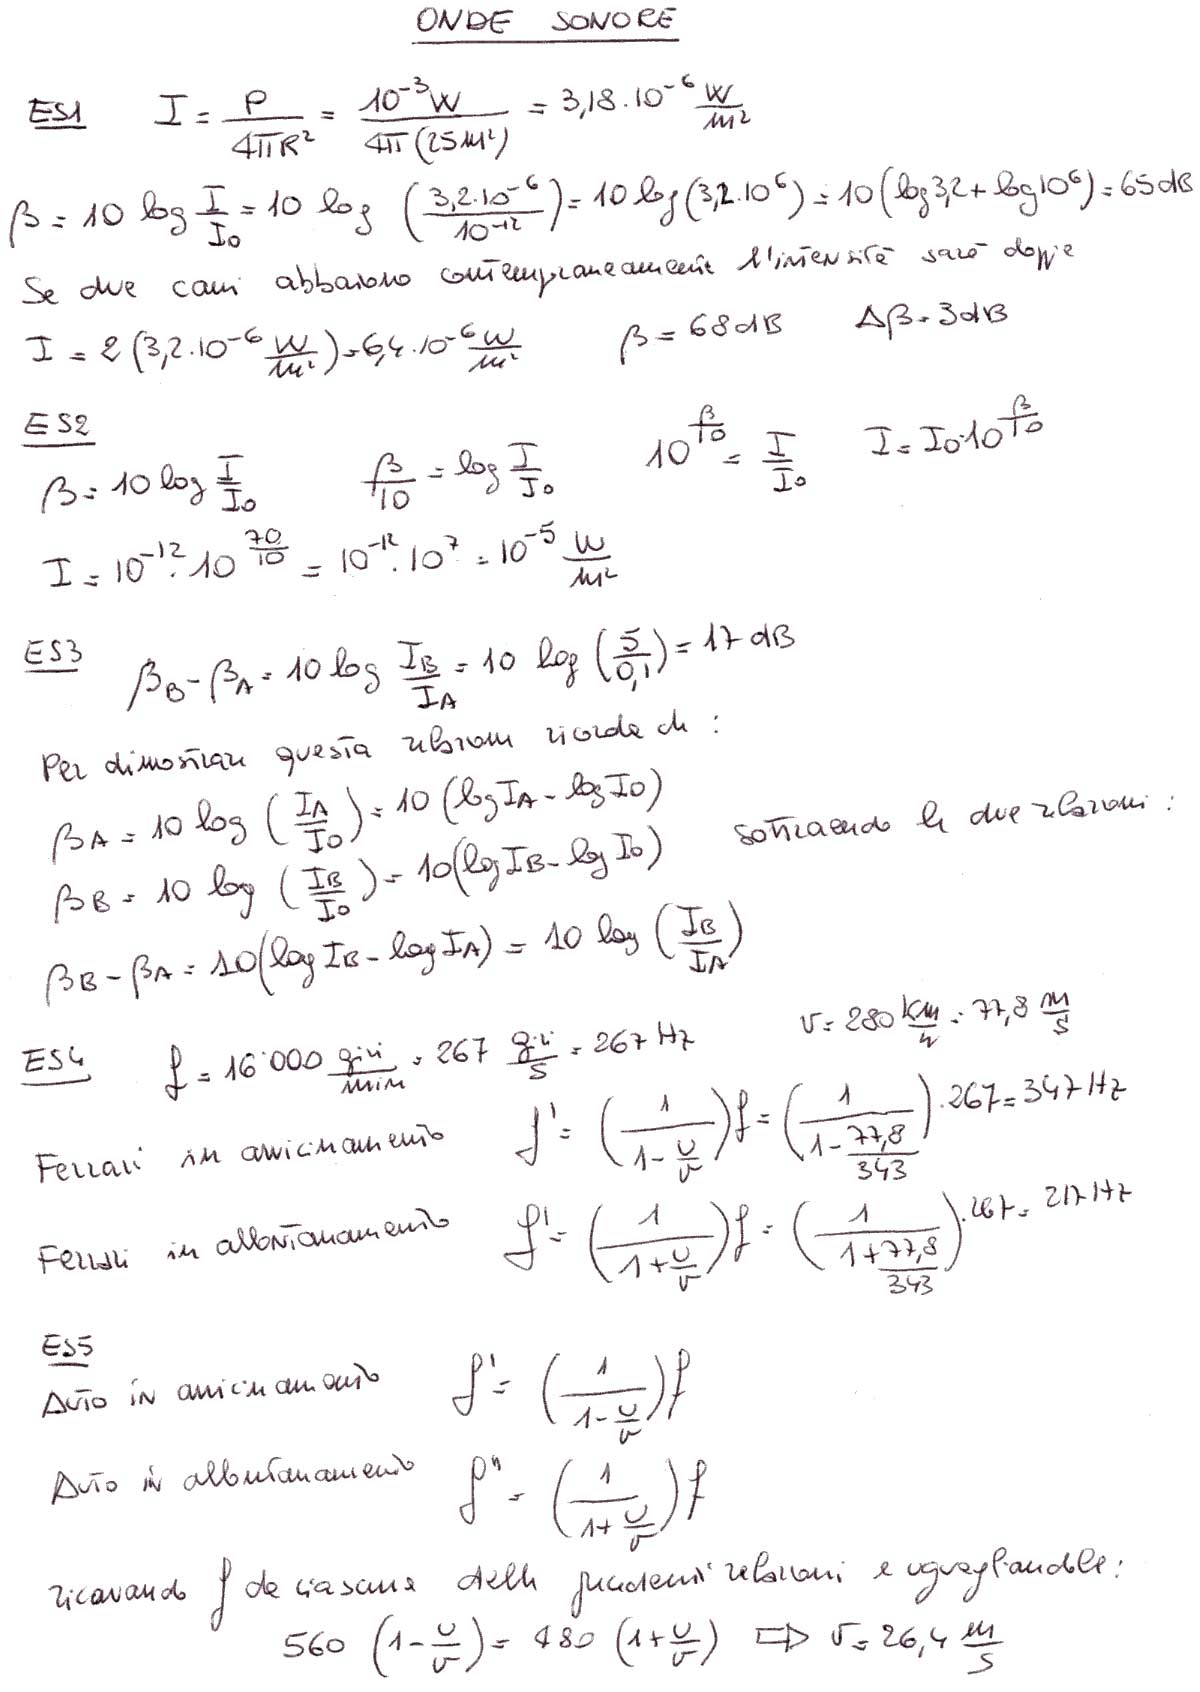 ONDE SONORE
ES1 I = P/(4πR²) = 10⁻³W/(4π(25m²)) = 3,18·10⁻⁶ W/m²
β = 10 log I/I₀ = 10 log (3,2·10⁻⁶/10⁻¹²) = 10 log(3,2·10⁶) = 10(log3,2 + log10⁶) = 65dB
Se due cani abbaiono contemporaneamente l'intensità sarà doppia
I = 2(3,2·10⁻⁶ W/m²) = 6,4·10⁻⁶ W/m² β = 68dB Δβ = 3dB
ES2
β = 10 log I/I₀ β/10 = log I/I₀ 10^(β/10) = I/I₀ I = I₀·10^(β/10)
I = 10⁻¹²·10^(70/10) = 10⁻¹²·10⁷ = 10⁻⁵ W/m²
ES3 βB - βA = 10 log IB/IA = 10 log (5/0,1) = 17 dB
Per dimostrare questa relazione ricorda che:
βA = 10 log (IA/I₀) = 10 (log IA - log I₀)
βB = 10 log (IB/I₀) = 10(log IB - log I₀) sottraendo le due relazioni:
βB - βA = 10(log IB - log IA) = 10 log (IB/IA)
ES4 f = 16'000 giri/min = 267 giri/s = 267 Hz v = 280 km/h = 77,8 m/s
Ferrari in avvicinamento f' = (1/(1-u/v)) f = (1/(1-77,8/343))·267 = 347 Hz
Ferrari in allontanamento f' = (1/(1+u/v)) f = (1/(1+77,8/343))·267 = 217 Hz
ES5
Auto in avvicinamento f' = (1/(1-u/v)) f
Auto in allontanamento f'' = (1/(1+u/v)) f
ricavando f da ciascuna delle precedenti relazioni e uguagliandole:
560 (1-u/v) = 480 (1+u/v) ⇨ v = 26,4 m/s